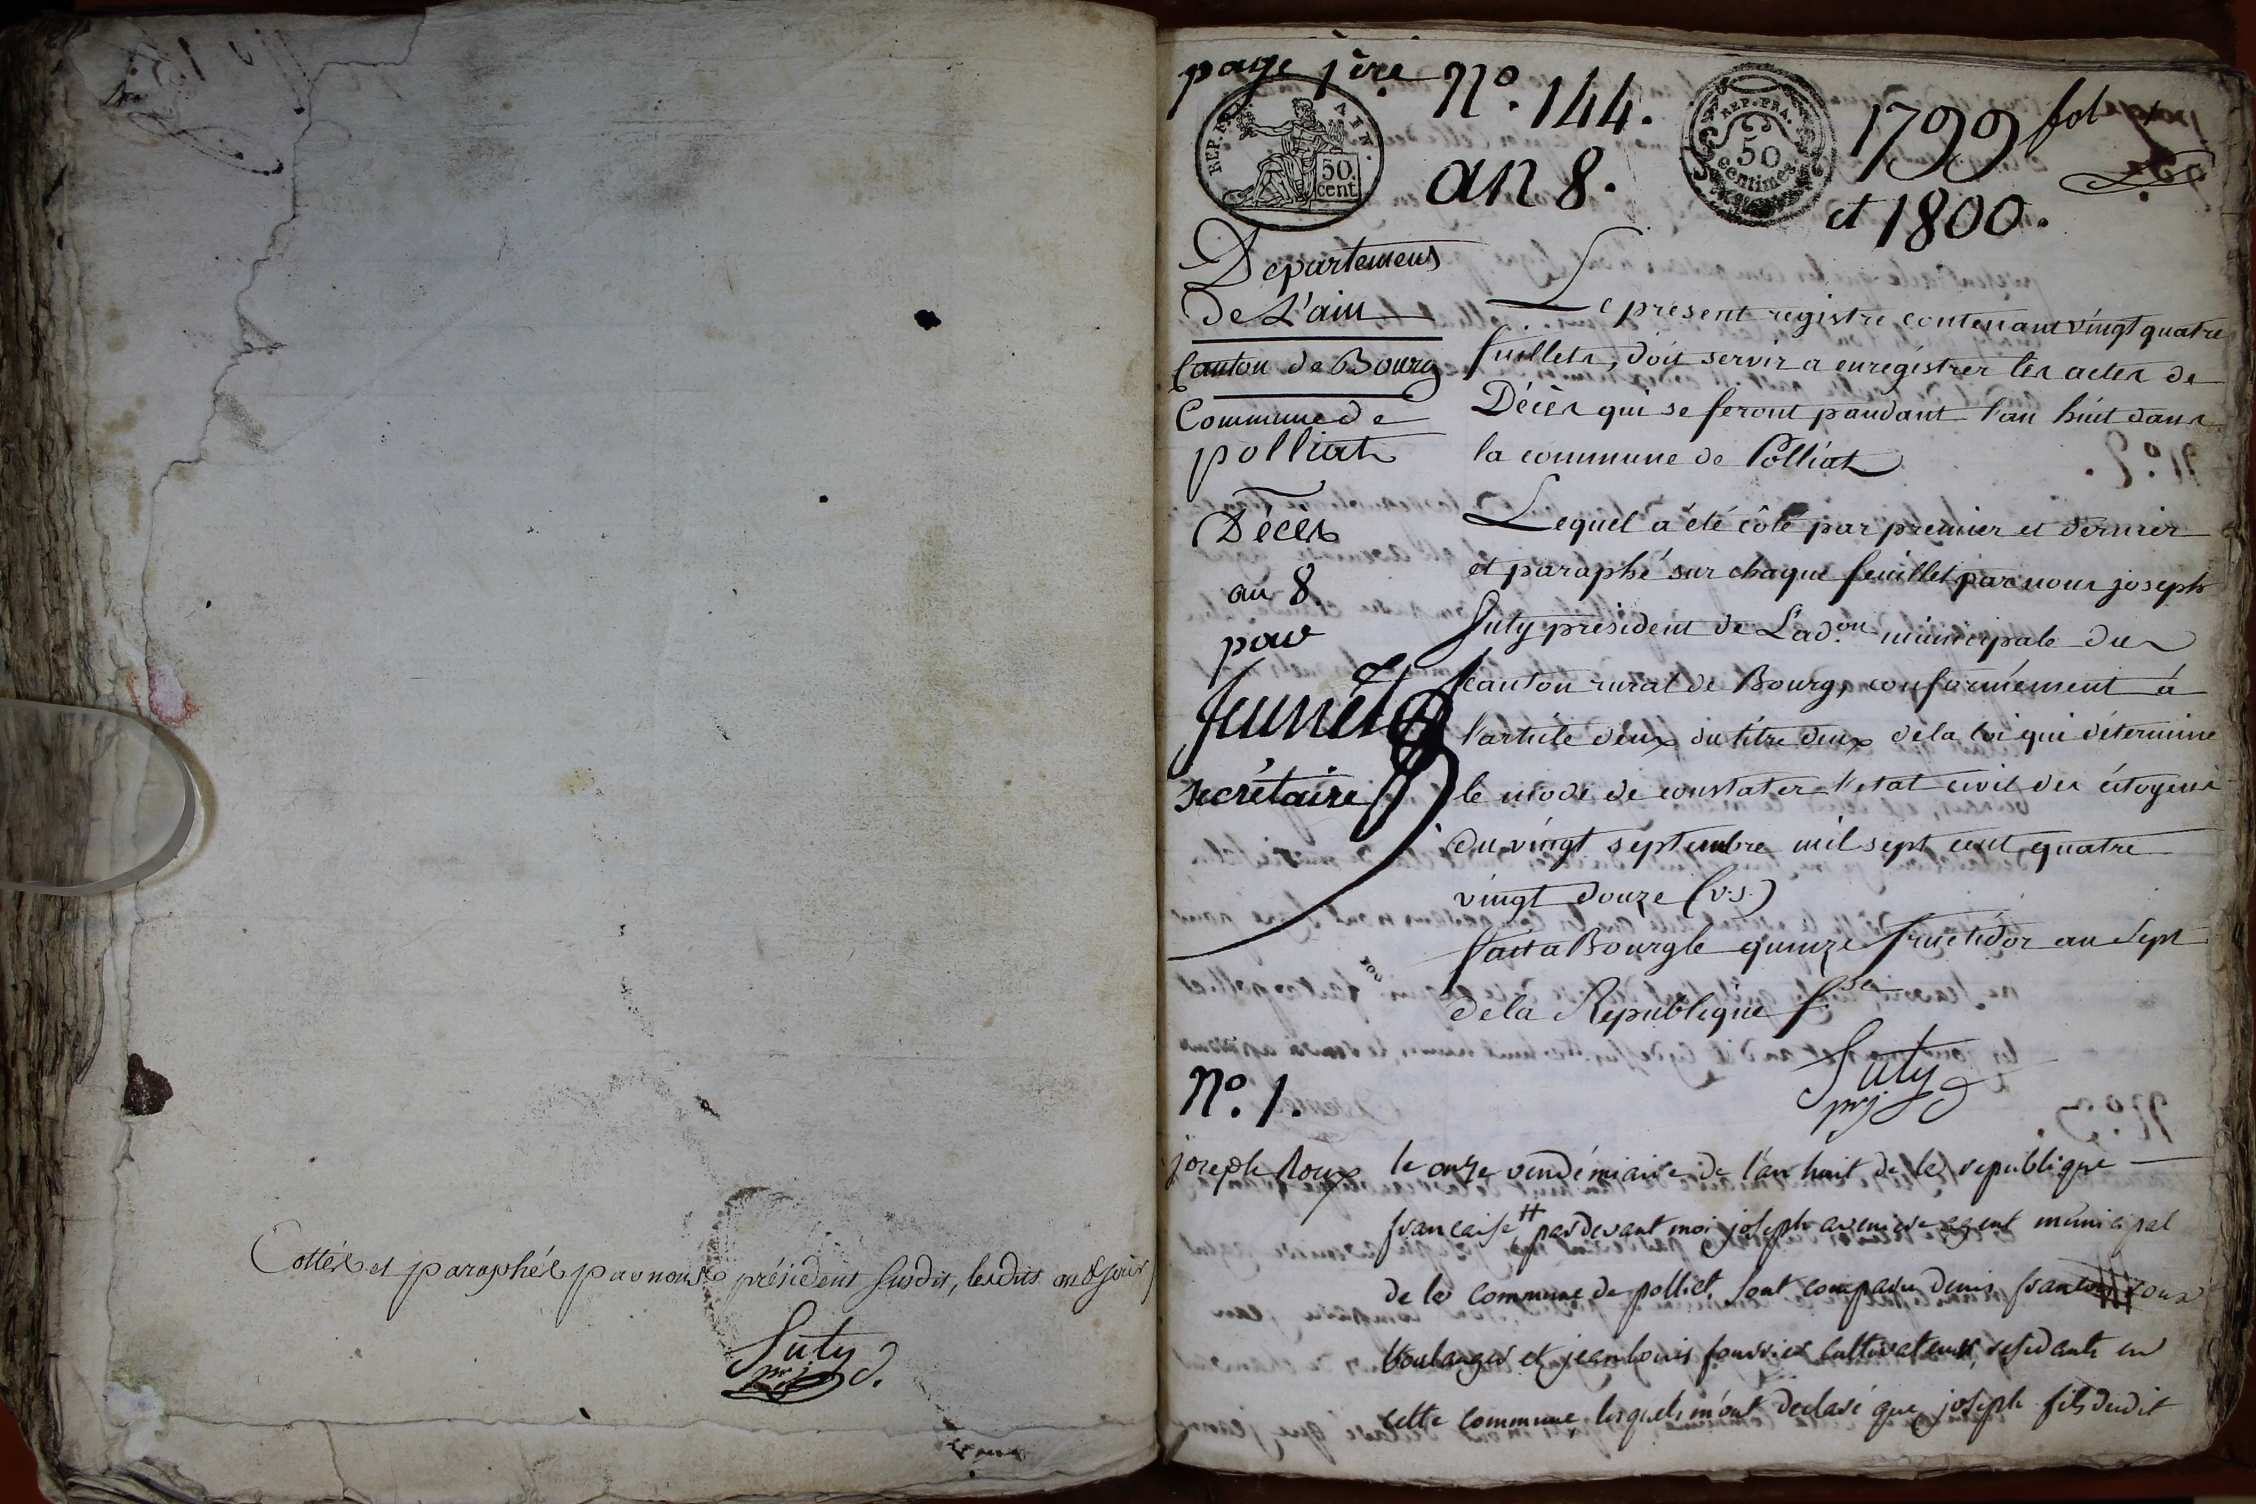 Cottés et paraphés par nous président susdit, lesdits an & jour
Suty
page 1ère
N°. 144.
an 8.
REP. FRA.
50
centimes
1799
et 1800.
fol 1
50.
cent.
Departement
De L'ain
Canton de Bourg
Commune de
polliat
Décès
an 8
pour
secrétaire
Le présent registre contenant vingt quatre
fuillets, doit servir a enregistrer les actes de
Décès qui se feront pandant l'an huit dans
la commune de Polliat
Lequel a été côté par premier et dernier
et paraphé sur chaque feuillet par nous joseph
Suty président de L'ad.on municipale du
canton rural de Bourg, conformément à
l'article deux du titre deux de la loi qui détermine
le mode de constater l'etat civil des citoyens
du vingt septembre mil sept cent quatre
vingt douze (v.s.)
fait a Bourg le quinze fructidor an Sept
de la République f.se
Suty
N°. 1.
joseph Roux
le onze vendémiaire de l'an huit de la republique
francaise pardevant moi joseph aveniere agent municipal
de la commune de polliat, sont comparu denis roux
boulanger et jean louis fourrier cultivateurs, residants en
cette commune, lesquels m'ont declaré que joseph fils dudit